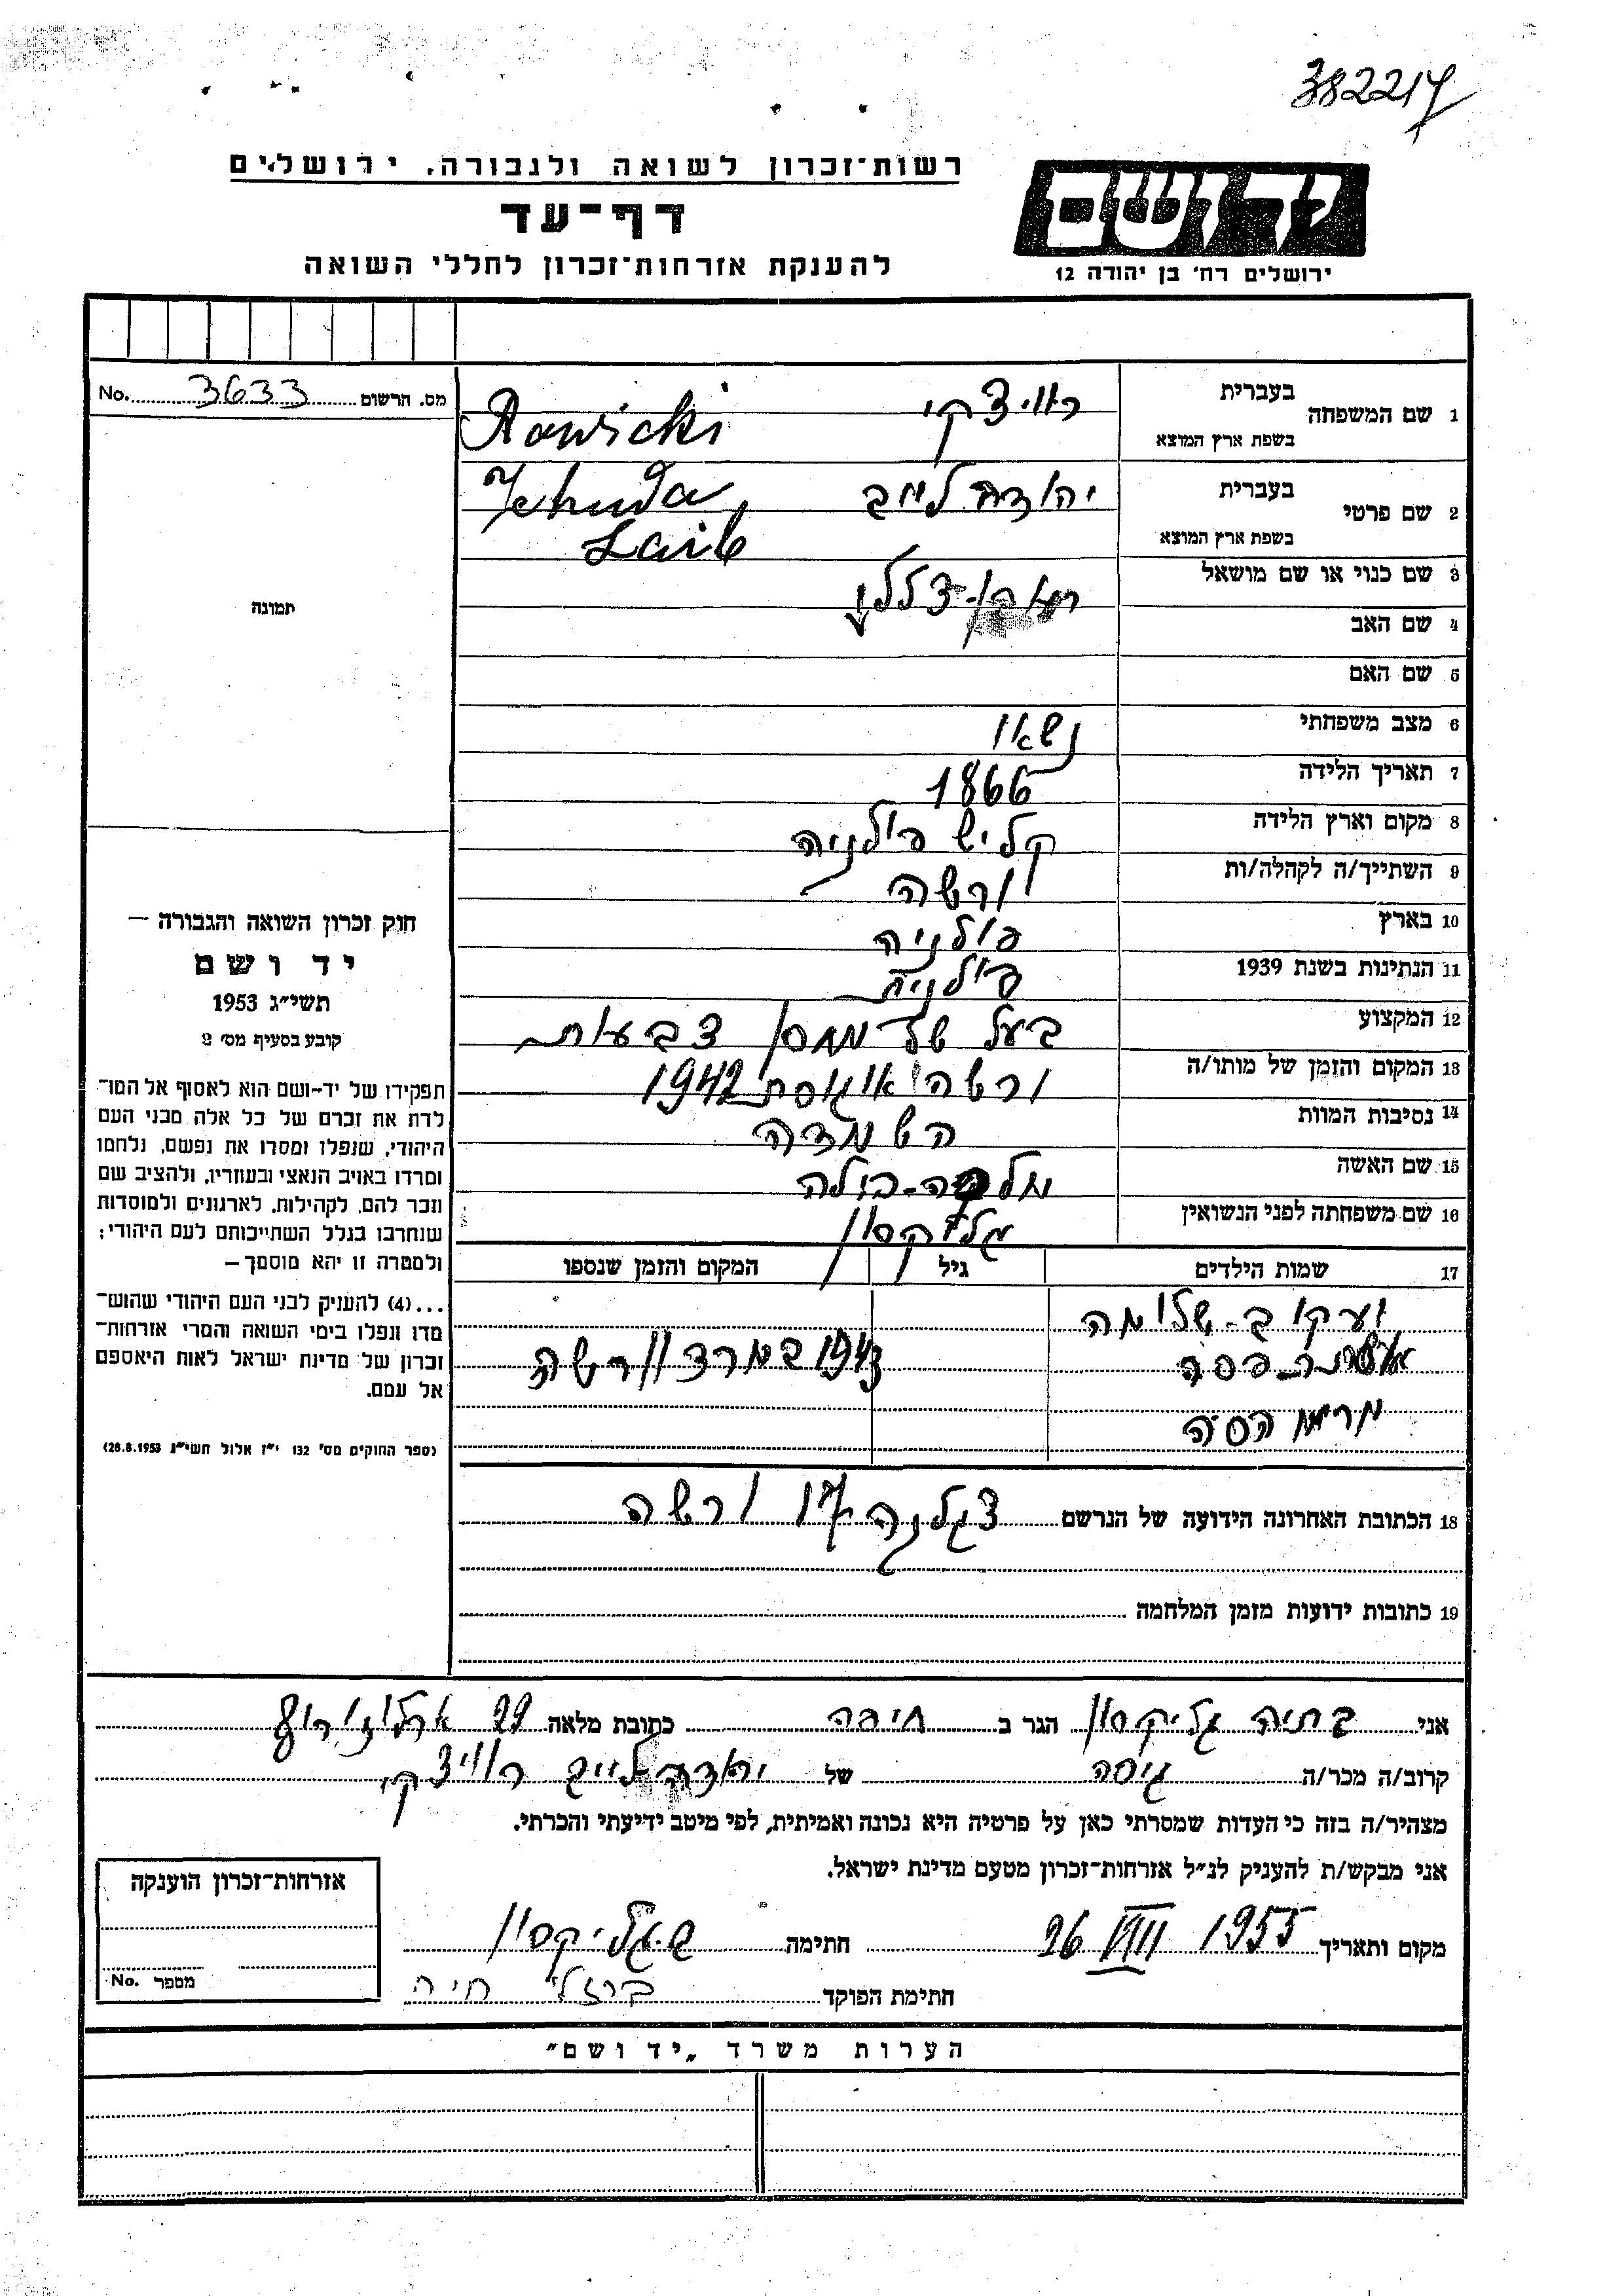 382214
רשות־זכרון לשואה ולגבורה. ירושלים
דף־עד
להענקת אזרחות־זכרון לחללי השואה
יד ושם
ירושלים רח' בן יהודה 12
מס. הרשום 3633 No.
1 שם המשפחה בעברית רוויצקי
בשפת ארץ המוצא Rawicki
2 שם פרטי בעברית יהודה לייב
בשפת ארץ המוצא Jehuda Laib
3 שם כנוי או שם מושאל
4 שם האב
5 שם האם
6 מצב משפחתי נשאוי
7 תאריך הלידה 1866
8 מקום וארץ הלידה קליש פולניה
9 השתייך/ה לקהלה/ות ורשה
10 בארץ פולניה
11 הנתינות בשנת 1939 פולניה
12 המקצוע בעל של מחסן צבעות
13 המקום והזמן של מותו/ה ורשה אוגוסט 1942
14 נסיבות המוות השמדה
15 שם האשה מלכה-בולה
16 שם משפחתה לפני הנשואין גליקסון
17 שמות הילדים גיל המקום והזמן שנספו
יעקוב-שלומה
פסה 1943 במרד וורשה
מרים הסיה
18 הכתובת האחרונה הידועה של הנרשם ורשה
19 כתובות ידועות מזמן המלחמה
תמונה
חוק זכרון השואה והגבורה —
יד ושם
תשי״ג 1953
קובע בסעיף מס׳ 2
תפקידו של יד-ושם הוא לאסוף אל המו־
לדת את זכרם של כל אלה מבני העם
היהודי, שנפלו ומסרו את נפשם, נלחמו
ומרדו באויב הנאצי ובעוזריו, ולהציב שם
וזכר להם, לקהילות, לארגונים ולמוסדות
שנחרבו בגלל השתייכותם לעם היהודי;
ולמטרה זו יהא מוסמך —
...(4) להעניק לבני העם היהודי שהוש־
מדו ונפלו בימי השואה והמרי אזרחות־
זכרון של מדינת ישראל לאות היאספם
אל עמם.
(ספר החוקים מס׳ 132 י״ז אלול תשי״ג 28.8.1953)
אני בתיה גליקסון הגר ב חיפה כתובת מלאה 29 ארלוזורוב
קרוב/ה מכר/ה גיסה של יהודה לייב רוויצקי
מצהיר/ה בזה כי העדות שמסרתי כאן על פרטיה היא נכונה ואמיתית, לפי מיטב ידיעתי והכרתי.
אני מבקש/ת להעניק לנ״ל אזרחות־זכרון מטעם מדינת ישראל.
מקום ותאריך 26 VIII 1955 חתימה ב.גליקסון
חתימת הפוקד ברזלי חיה
אזרחות־זכרון הוענקה
מספר No.
הערות משרד „יד ושם״